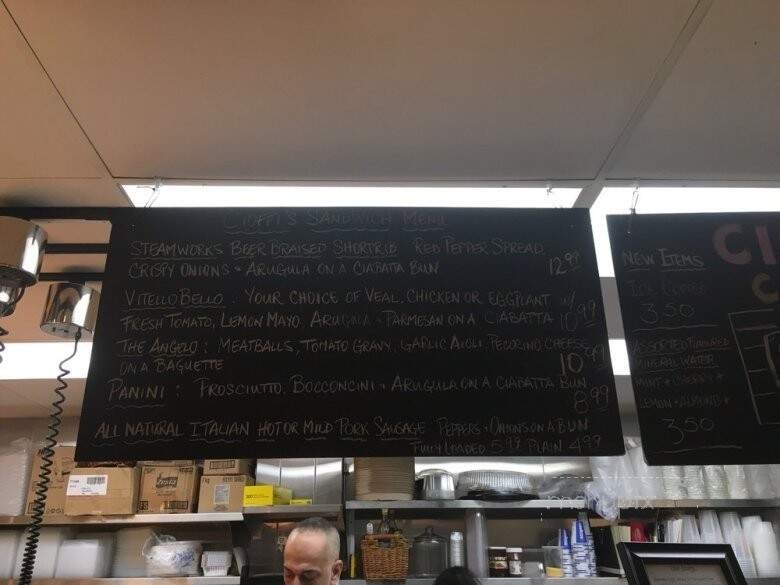 CIOFFI'S SANDWICH MENU
STEAMWORKS BEER BRAISED SHORTRIB RED PEPPER SPREAD
CRISPY ONIONS + ARUGULA ON A CIABATTA BUN 12.99
VITELLO BELLO: YOUR CHOICE OF VEAL, CHICKEN OR EGGPLANT W/
FRESH TOMATO, LEMON MAYO, ARUGULA + PARMESAN ON A CIABATTA 10.99
THE ANGELO: MEATBALLS, TOMATO GRAVY, GARLIC AIOLI, PECORINO CHEESE
ON A BAGUETTE 10.99
PANINI: PROSCIUTTO, BOCCONCINI + ARUGULA ON A CIABATTA BUN
8.99
ALL NATURAL ITALIAN HOT OR MILD PORK SAUSAGE PEPPERS + ONIONS ON A BUN
FULLY LOADED 5.99 PLAIN 4.99
NEW ITEMS
3.50
ASSORTED FLAVOURED
MINERAL WATER
MINT + CHERRY +
LEMON + ALMOND +
3.50
CI
C